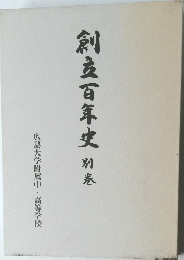 創立百年史 別巻
広島大学附属中・高等学校